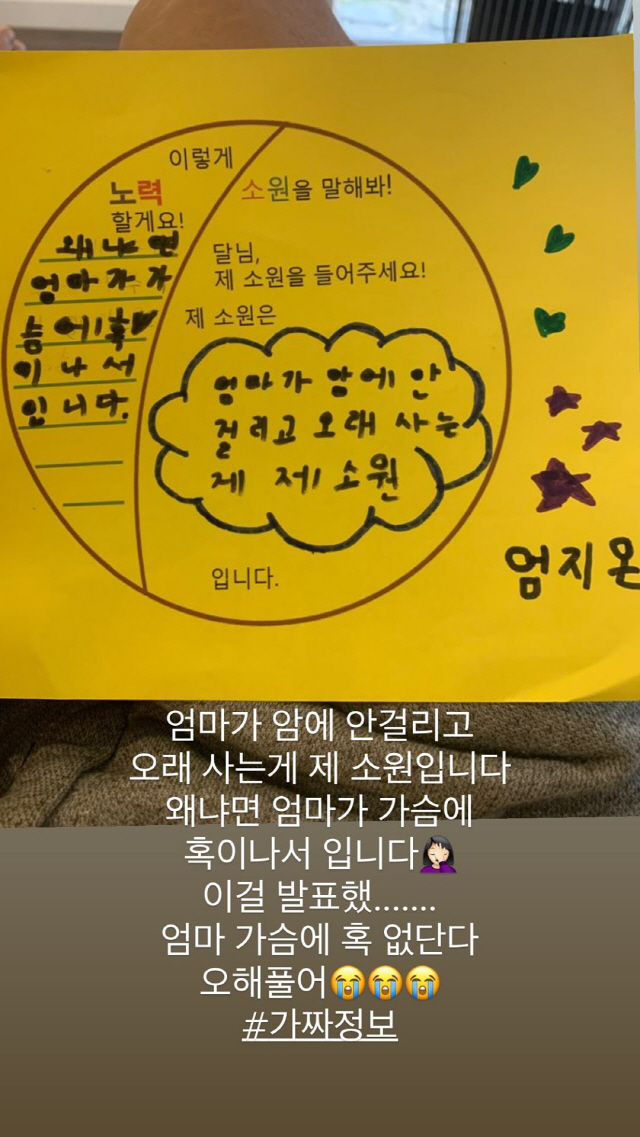 이렇게
노력
할게요!
왜냐면
엄마가 가
슴에 혹
이나서
입니다.
소원을 말해봐!
달님,
제 소원을 들어주세요!
제 소원은
엄마가 암에 안
걸리고 오래 사는
게 제 소원
입니다.
엄지온
엄마가 암에 안걸리고
오래 사는게 제 소원입니다
왜냐면 엄마가 가슴에
혹이나서 입니다🤦🏻‍♀️
이걸 발표했.......
엄마 가슴에 혹 없단다
오해풀어😭😭😭
#가짜정보